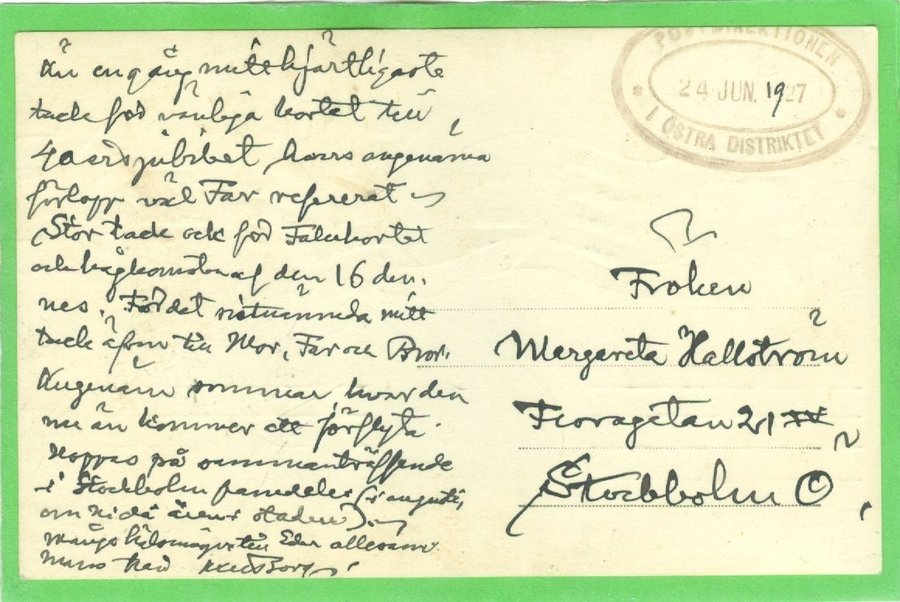 Än en gång mitt hjärtligaste
tack för vänliga kortet till
40 årsjubileet hvars angenäma
förlopp väl Far refererat
Stor tack ock för Falukortet
och hågkomsten af den 16 den-
nes. För det sistnämnda mitt
tack äfven till Mor, Far och Bror.
Angenäm sommar, hvar den
nu än kommer att förflyta.
Hoppas på sammanträffande
i Stockholm framdeles (i augusti,
om Ni då är i staden).
Många hälsningar till Eder allesam-
mans från
POSTDIREKTIONEN
24 JUN. 1927
I ÖSTRA DISTRIKTET
Fröken
Margareta Hallström
Floragatan 21
Stockholm Ö